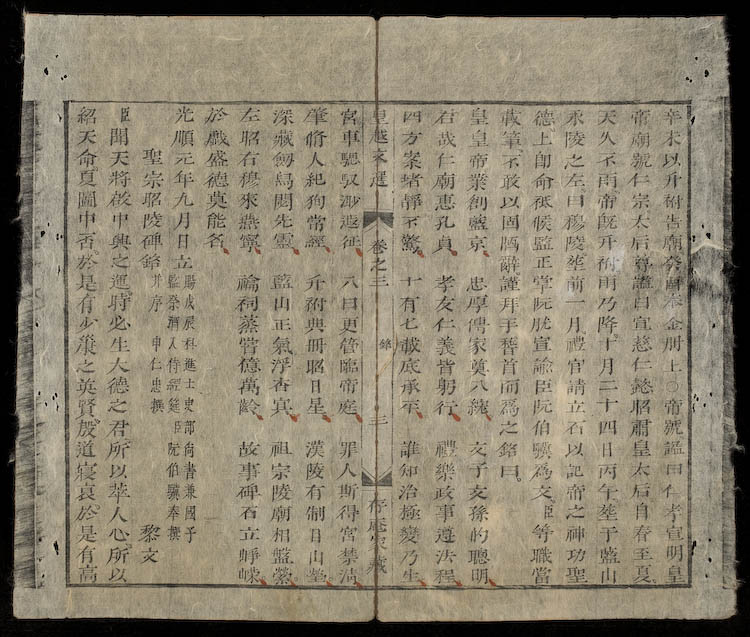 辛未以升祔告廟癸酉奉金册上〇帝號諡曰仁孝宣明皇
帝廟號仁宗太后尊諡曰宣慈仁懿昭肅皇太后自春至夏
天久不雨帝既升祔雨乃降十月二十四日丙午葬于藍山
永陵之左曰穆陵葬前一月禮官請立石以記帝之神功聖
德上卽命祗候監正掌阮胱宣諭臣阮伯驥爲文臣等職當
載筆不敢以固陋辭謹拜手稽首而爲之銘曰
皇皇帝業創藍京 忠厚傳家奠八紘 文子文孫的聰明
右哉仁廟惠孔貞 孝友仁義皆躬行 禮樂政事遵法程
四方案堵靜不驚 十有七載底承平 誰知治極變乃生
皇越文選 卷之三 銘 三 存庵家藏
宮車驄馭邈遐征 八日更管臨帝庭 罪人斯得宮禁淸
肇脩人紀狥常經 升祔典册昭日星 漢陵有制因山塋
深藏劒舄閟先靈 藍山正氣浮杳冥 祖宗陵廟相盤縈
左昭右穆來燕寧 禴祠蒸嘗億萬齡 故事碑石立崢嶸
於戲盛德莫能名
光順元年九月日立 賜戊辰科進士吏部尙書兼國子
監祭酒入侍經筵臣阮伯驥奉撰
聖宗昭陵碑銘 并序 申仁忠撰 黎文
臣聞天將啟中興之運時必生大德之君所以萃人心所以
紹天命夏圖中否於是有少康之英賢殷道寢衰於是有高